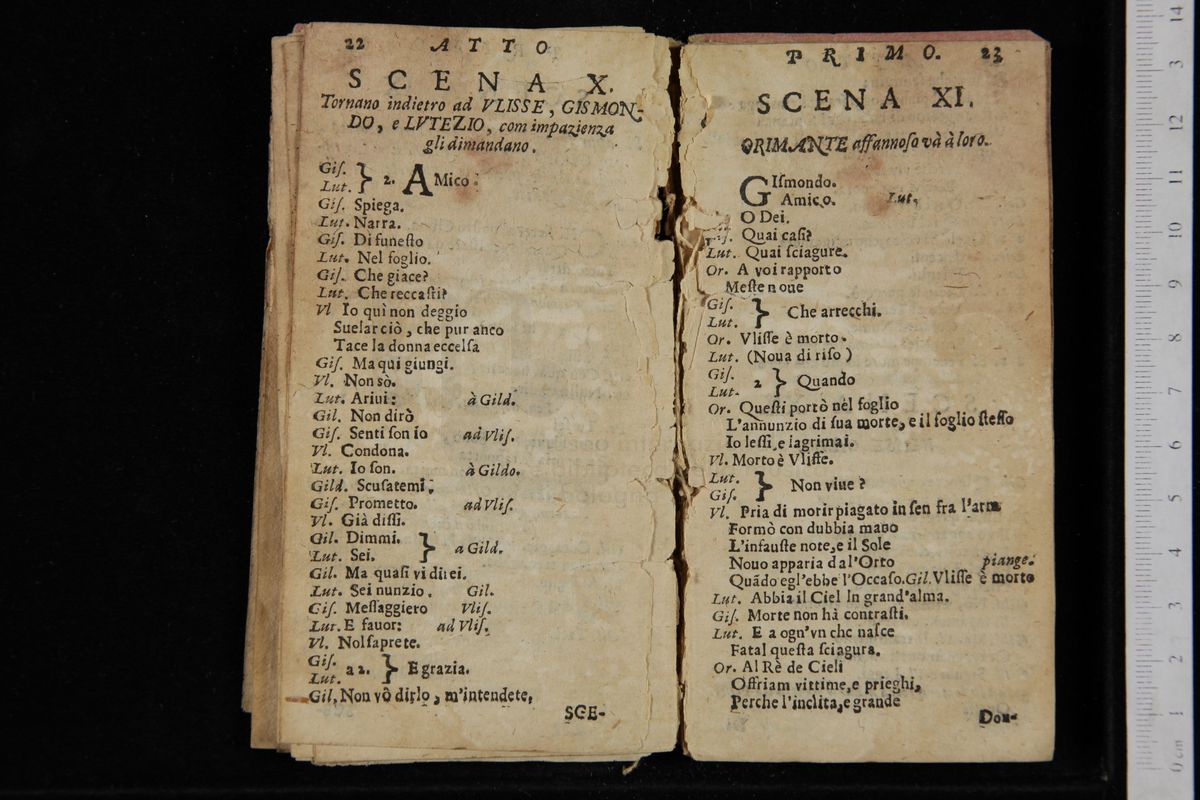 22 ATTO
SCENA X.
Tornano indietro ad VLISSE, GISMON-
DO, e LVTEZIO, com impazienza
gli dimandano.
Giſ.
Lut. } 2. AMico.
Giſ. Spiega.
Lut. Narra.
Giſ. Di funeſto
Lut. Nel foglio.
Giſ. Che giace?
Lut. Che reccaſti?
Vl Io quì non deggio
Suelar ciò, che pur anco
Tace la donna eccelſa
Giſ. Ma qui giungi.
Vl. Non sò.
Lut. Ariui: à Gild.
Gil. Non dirò
Giſ. Senti ſon io ad Vliſ.
Vl. Condona.
Lut. Io ſon. à Gildo.
Gild. Scuſatemi;
Giſ. Prometto. ad Vliſ.
Vl. Già diſſi.
Gil. Dimmi.
Lut. Sei. } a Gild.
Gil. Ma quaſi vi direi.
Lut. Sei nunzio. Gil.
Giſ. Meſſaggiero Vliſ.
Lut. E fauor: ad Vliſ.
Vl. Nol ſaprete.
Giſ.
Lut. a 2. } E grazia.
Gil. Non vò dirlo, m'intendete,
SCE-
PRIMO. 23
SCENA XI.
ORIMANTE affannoſo và à loro.
GIſmondo.
Amico. Lut.
O Dei.
Giſ. Quai caſi?
Lut. Quai ſciagure.
Or. A voi rapporto
Meſte noue
Giſ.
Lut. } Che arrecchi.
Or. Vliſſe è morto.
Lut. (Noua di riſo)
Giſ.
Lut. 2 } Quando
Or. Queſti portò nel foglio
L'annunzio di ſua morte, e il foglio ſteſſo
Io leſſi, e lagrimai.
Vl. Morto è Vliſſe.
Lut.
Giſ. } Non viue?
Vl. Pria di morir piagato in ſen fra l'arm
Formò con dubbia mano
L'infauſte note, e il Sole
Nouo apparia dal'Orto piange.
Quãdo egl'ebbe l'Occaſo. Gil. Vliſſe è morto
Lut. Abbia il Ciel In grand'alma.
Giſ. Morte non hà contraſti.
Lut. E a ogn'vn che naſce
Fatal queſta ſciagura.
Or. Al Rè de Cieli
Offriam vittime, e prieghi,
Perche l'inclita, e grande
Don-